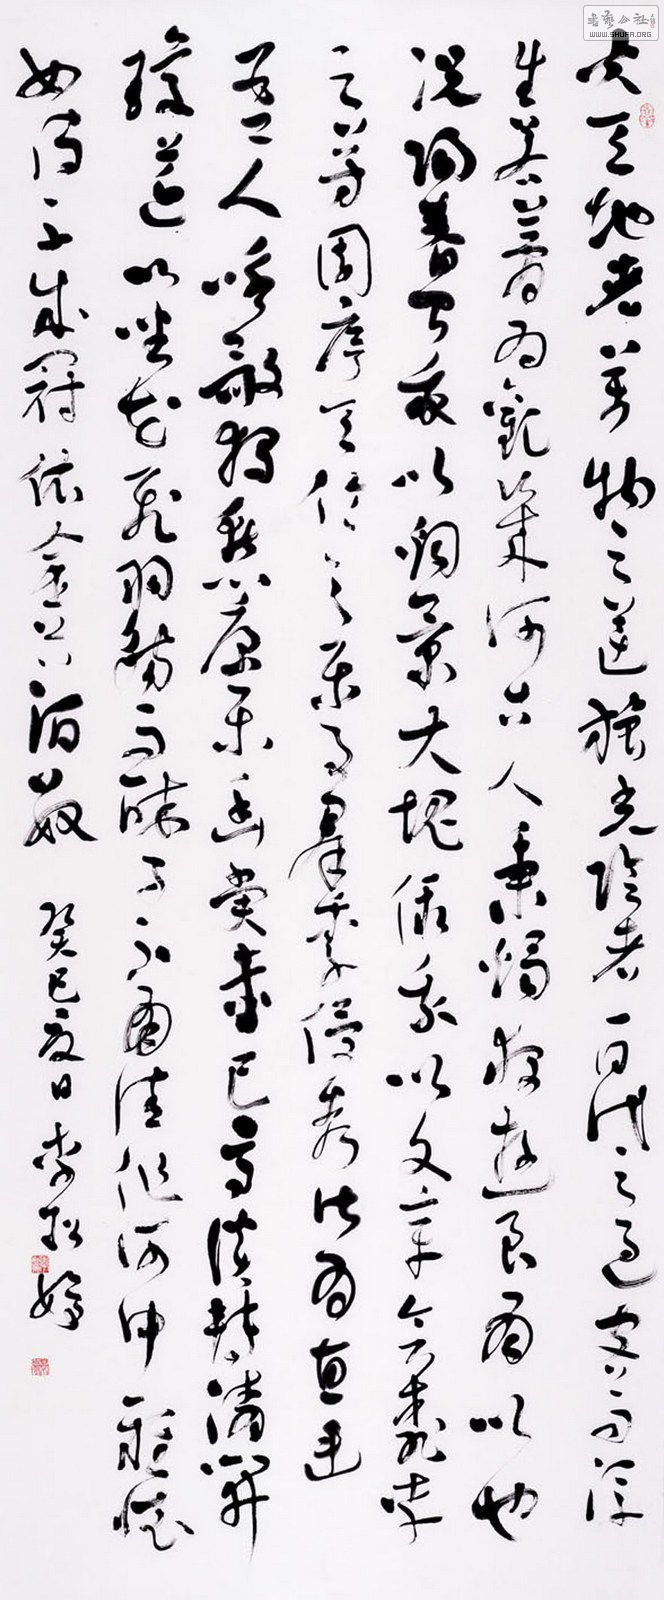 夫天地者萬物之逆旅光陰者百代之過客而浮
生若夢為歡幾何古人秉燭夜遊良有以也
況陽春召我以烟景大塊假我以文章會桃李
之芳園序天倫之樂事羣季俊秀皆為惠連
吾人咏歌獨慚康樂幽賞未已高談轉清開
瓊筵以坐花飛羽觴而醉月不有佳作何伸雅懷
如詩不成罰依金谷酒數 癸巳夏日李松
書藝公社
WWW.SHUFA.ORG